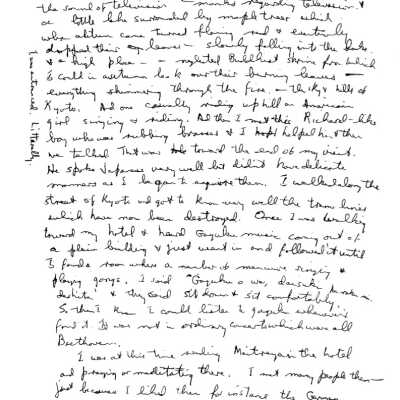 the sound of television — monks regarding television. &
a little lake surrounded by maple trees which
when autumn came turned flaming red & eventually
dropped their leaves — slowly falling into the lake
& a high place — a neglected Buddhist shrine from which
I could in autumn look over their burning leaves —
everything shimmering through the fire — the sky & hills of
Kyoto. And one casually riding up hill an American
girl singing & riding. And then I met this Richard-like
boy who was rubbing brasses & I helped him & then
we talked. That was toward the end of my visit.
He spoke Japanese very well but didn't have delicate
manners as I began to acquire them. I walked along the
streets of Kyoto and got to know very well the tram lines
which have now been destroyed. Once I was walking
toward my hotel & heard Gagaku music coming out of
a plain building & just went in and followed it until
I found a room where a number of men were singing &
playing gongs. I said "Gagaku
& they said sit down & sit comfortably.
So then I knew I could listen to gagaku whenever I
found it. It was not in ordinary concerts which were all
Beethoven.
I was at this time reading in the hotel
and praying or meditating there. I met many people then—
just because I liked them for instance the German
I was entranced. Literally.